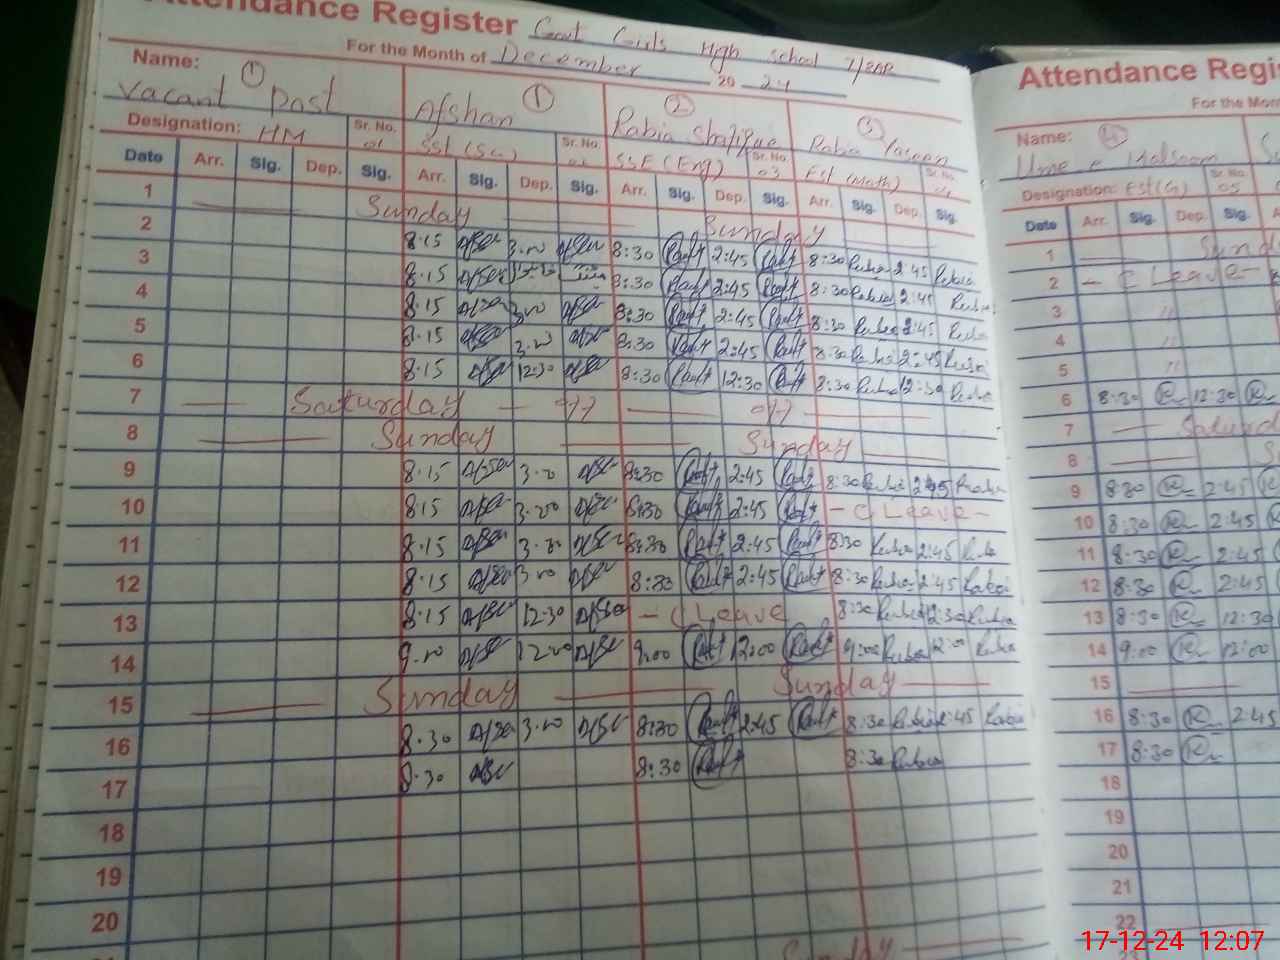 Attendance Register Govt Girls High School 7/8AR
For the Month of December 20 24
Name: Vacant Post
Afshan ①
② Rabia Shafique
③ Rabia Yaseen
Designation: HM Sr. No. 01
SST (Sc) Sr. No. 02
SSE (Eng) Sr. No. 03
EST (Math) Sr. No. 04
Date Arr. Sig. Dep. Sig. Arr. Sig. Dep. Sig. Arr. Sig. Dep. Sig. Arr. Sig. Dep. Sig.
1 Sunday Sunday
2 8.15 3.00 8:30 2:45 8:30 Rabia 2:45 Rabia
3 8.15 8:30 2:45 8:30 Rabia 2:45 Rabia
4 8.15 3.00 8:30 2:45 8:30 Rabia 2:45 Rabia
5 8.15 3.00 8:30 2:45 8:30 Rabia 2:45 Rabia
6 8.15 12:30 8:30 12:30 8:30 Rabia 12:30 Rabia
7 Saturday off off
8 Sunday Sunday
9 8.15 3.00 8:30 2:45 8:30 Rabia 2:45 Rabia
10 8.15 3.00 8:30 2:45 - C Leave -
11 8.15 3.00 8:30 2:45 8:30 Rabia 2:45 Rabia
12 8.15 3.00 8:30 2:45 8:30 Rabia 2:45 Rabia
13 8.15 12:30 - C Leave 8:30 Rabia 12:30 Rabia
14 9.00 12.00 9:00 12:00 9:00 Rabia 12:00 Rabia
15 Sunday Sunday
16 8.30 3.00 8:30 2:45 8:30 Rabia 2:45 Rabia
17 8.30 8:30 8:30 Rabia
18
19
20
Sunday
Attendance Regi
For the Mon
Name: ④
Ume e Kalsoom
Designation: EST(G) Sr. No. 05
Date Arr. Sig. Dep. Sig.
1 Sund
2 - C Leave -
3 "
4 "
5 "
6 8:30 12:30
7 Saturd
8 S
9 8:30 2:45
10 8:30 2:45
11 8:30 2:45
12 8:30 2:45
13 8:30 12:30
14 9:00 12:00
15
16 8:30 2:45
17 8:30
18
19
20
21
22
23
17-12-24 12:07